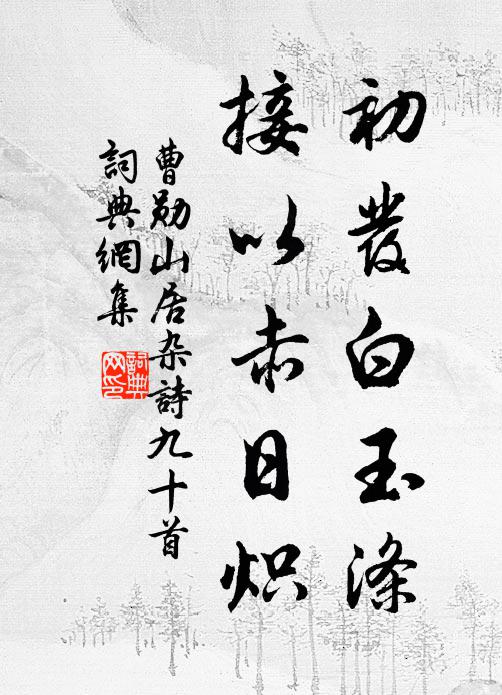 初發白玉滌
接以赤日炽
曹勋山居杂詩九十首
詞典網集
詞典网印